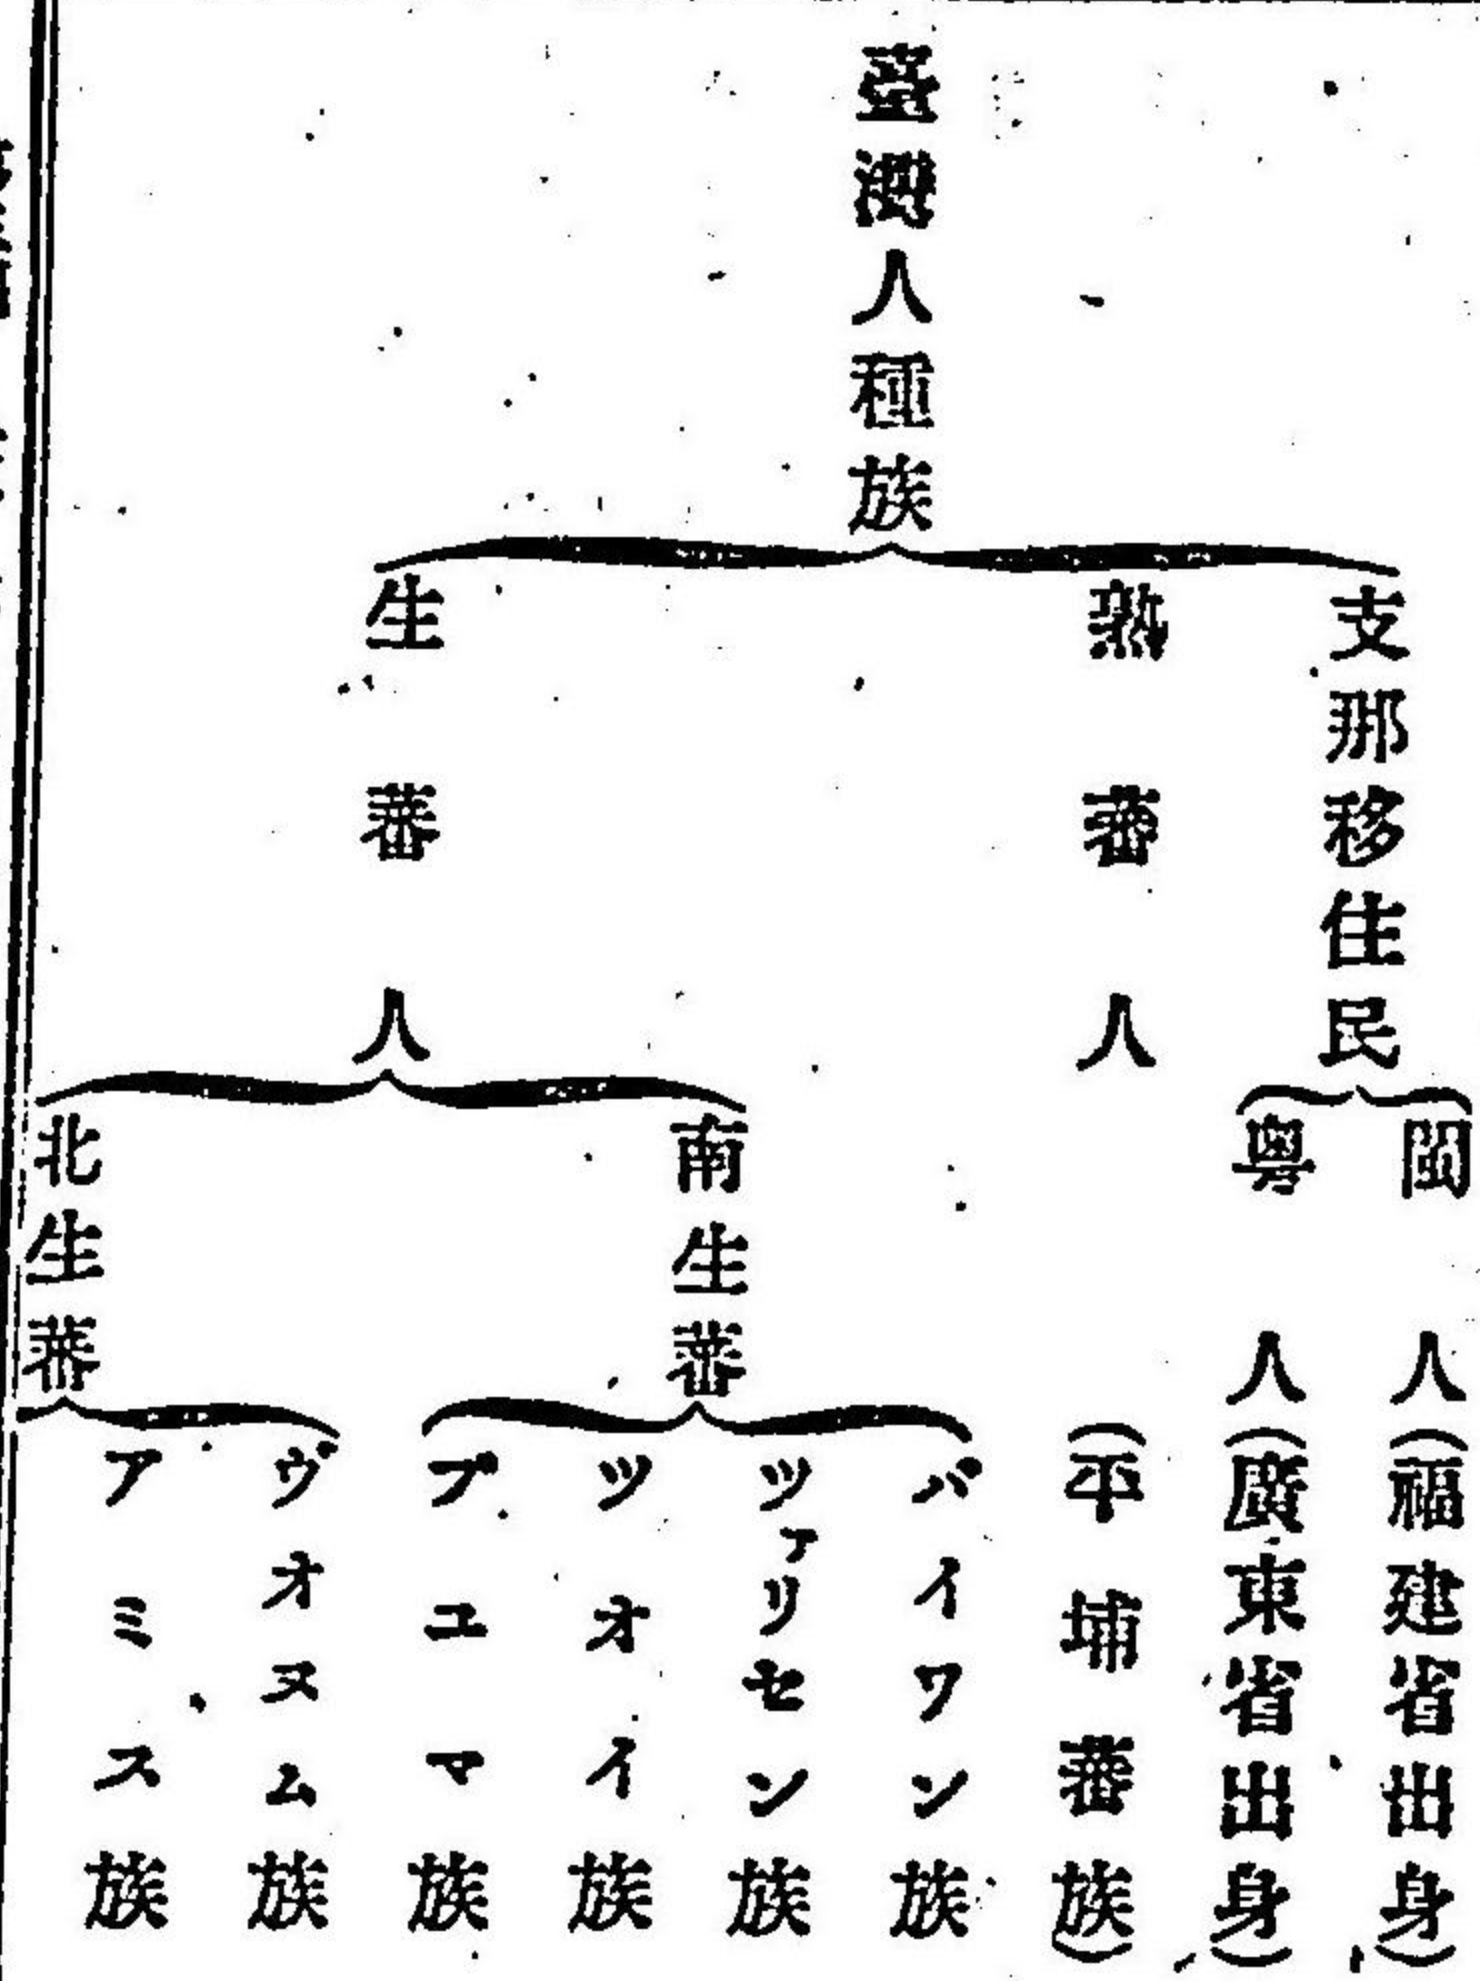 臺灣人種族
支那移住民
閩人(福建省出身)
粤人(廣東省出身)
熟蕃人
(平埔蕃族)
生蕃人
南生蕃
パイワン族
ツァリセン族
ツオイ族
プユマ族
北生蕃
ヴオヌム族
アミス族